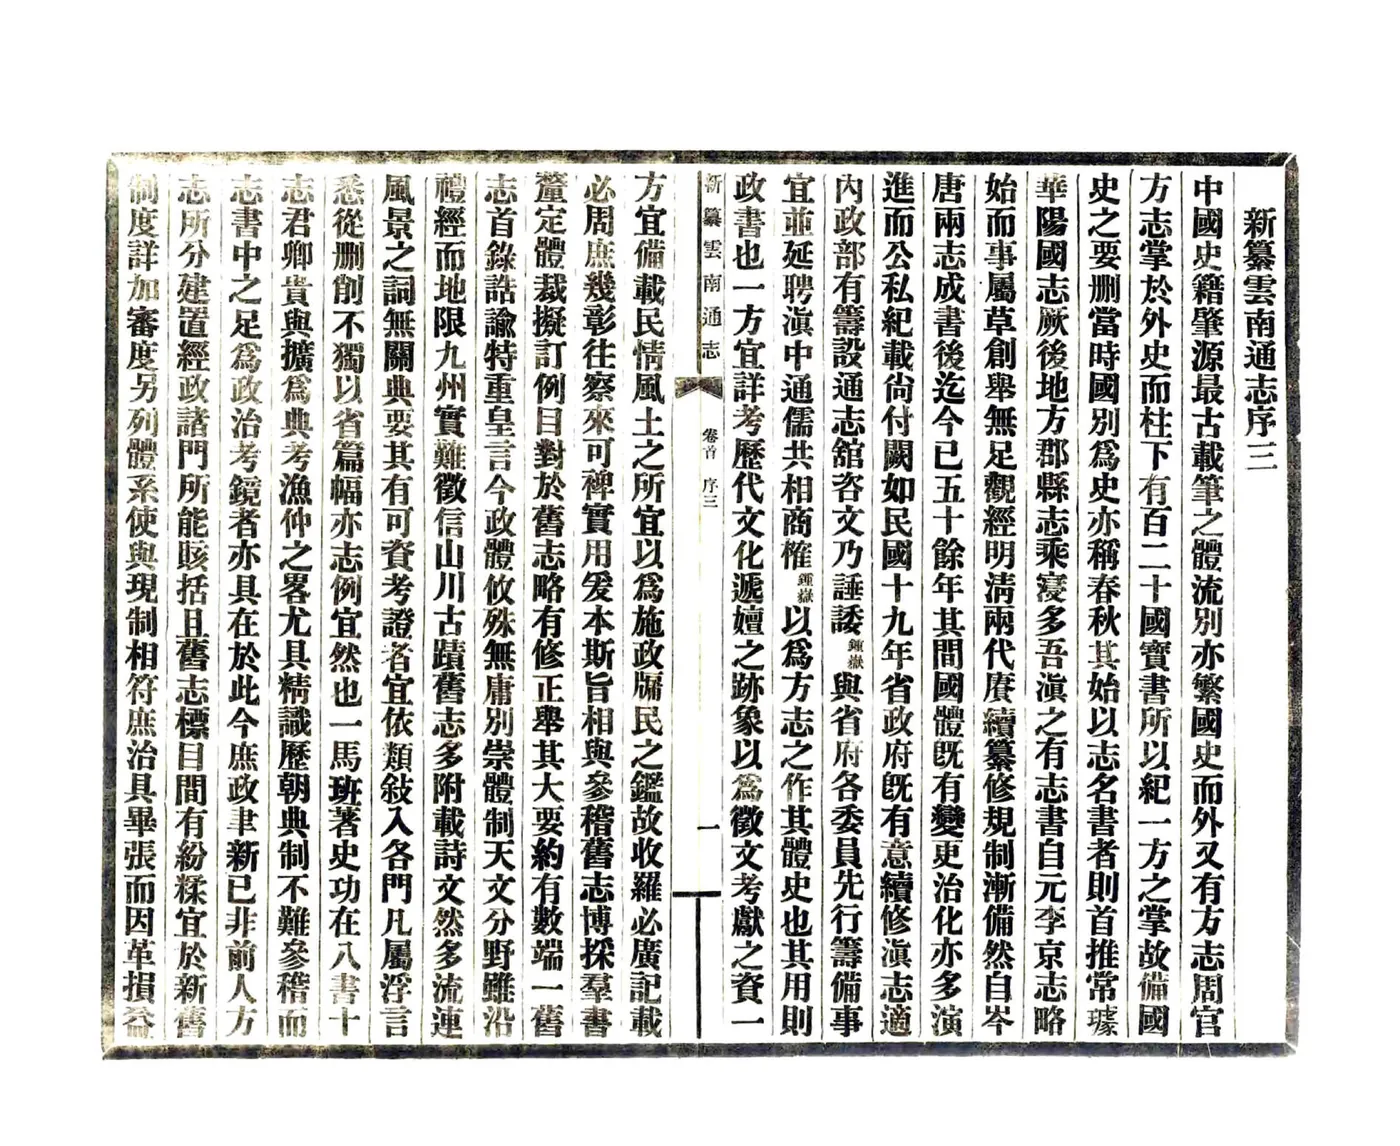 新纂雲南通志序三
中國史籍肇源最古載筆之體流別亦繁國史而外又有方志周官
方志掌於外史而柱下有百二十國寶書所以紀一方之掌故備國
史之要刪當時國別爲史亦稱春秋其始以志名書者則首推常璩
華陽國志厥後地方郡縣志乘寖多吾滇之有志書自元李京志略
始而事屬草創舉無足觀經明清兩代賡續纂修規制漸備然自岑
唐兩志成書後迄今已五十餘年其間國體旣有變更治化亦多演
進而公私紀載尙付闕如民國十九年省政府旣有意續修滇志適
內政部有籌設通志舘咨文乃諈諉鍾嶽與省府各委員先行籌備事
宜並延聘滇中通儒共相商榷鍾嶽以爲方志之作其體史也其用則
政書也一方宜詳考歷代文化遞嬗之跡象以爲徵文考獻之資一
新纂雲南通志 卷首 序三 一
方宜備載民情風土之所宜以爲施政牖民之鑑故收羅必廣記載
必周庶幾彰往察來可裨實用爰本斯旨相與參稽舊志博採羣書
釐定體裁擬訂例目對於舊志略有修正舉其大要約有數端一舊
志首錄誥諭特重皇言今政體攸殊無庸別崇體制天文分野雖沿
禮經而地限九州實難徵信山川古蹟舊志多附載詩文然多流連
風景之詞無關典要其有可資考證者宜依類敍入各門凡屬浮言
悉從刪削不獨以省篇幅亦志例宜然也一馬班著史功在八書十
志君卿貴與擴爲典考漁仲之畧尤具精識歷朝典制不難參稽而
志書中之足爲政治考鏡者亦具在於此今庶政聿新已非前人方
志所分建置經政諸門所能賅括且舊志標目間有紛糅宜於新舊
制度詳加審度另列體系使與現制相符庶治具畢張而因革損益